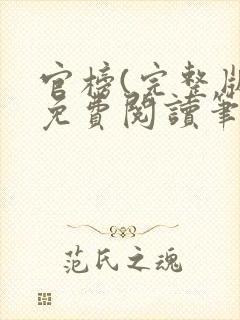 官榜(完整版
免費閱讀筆
范氏之魂